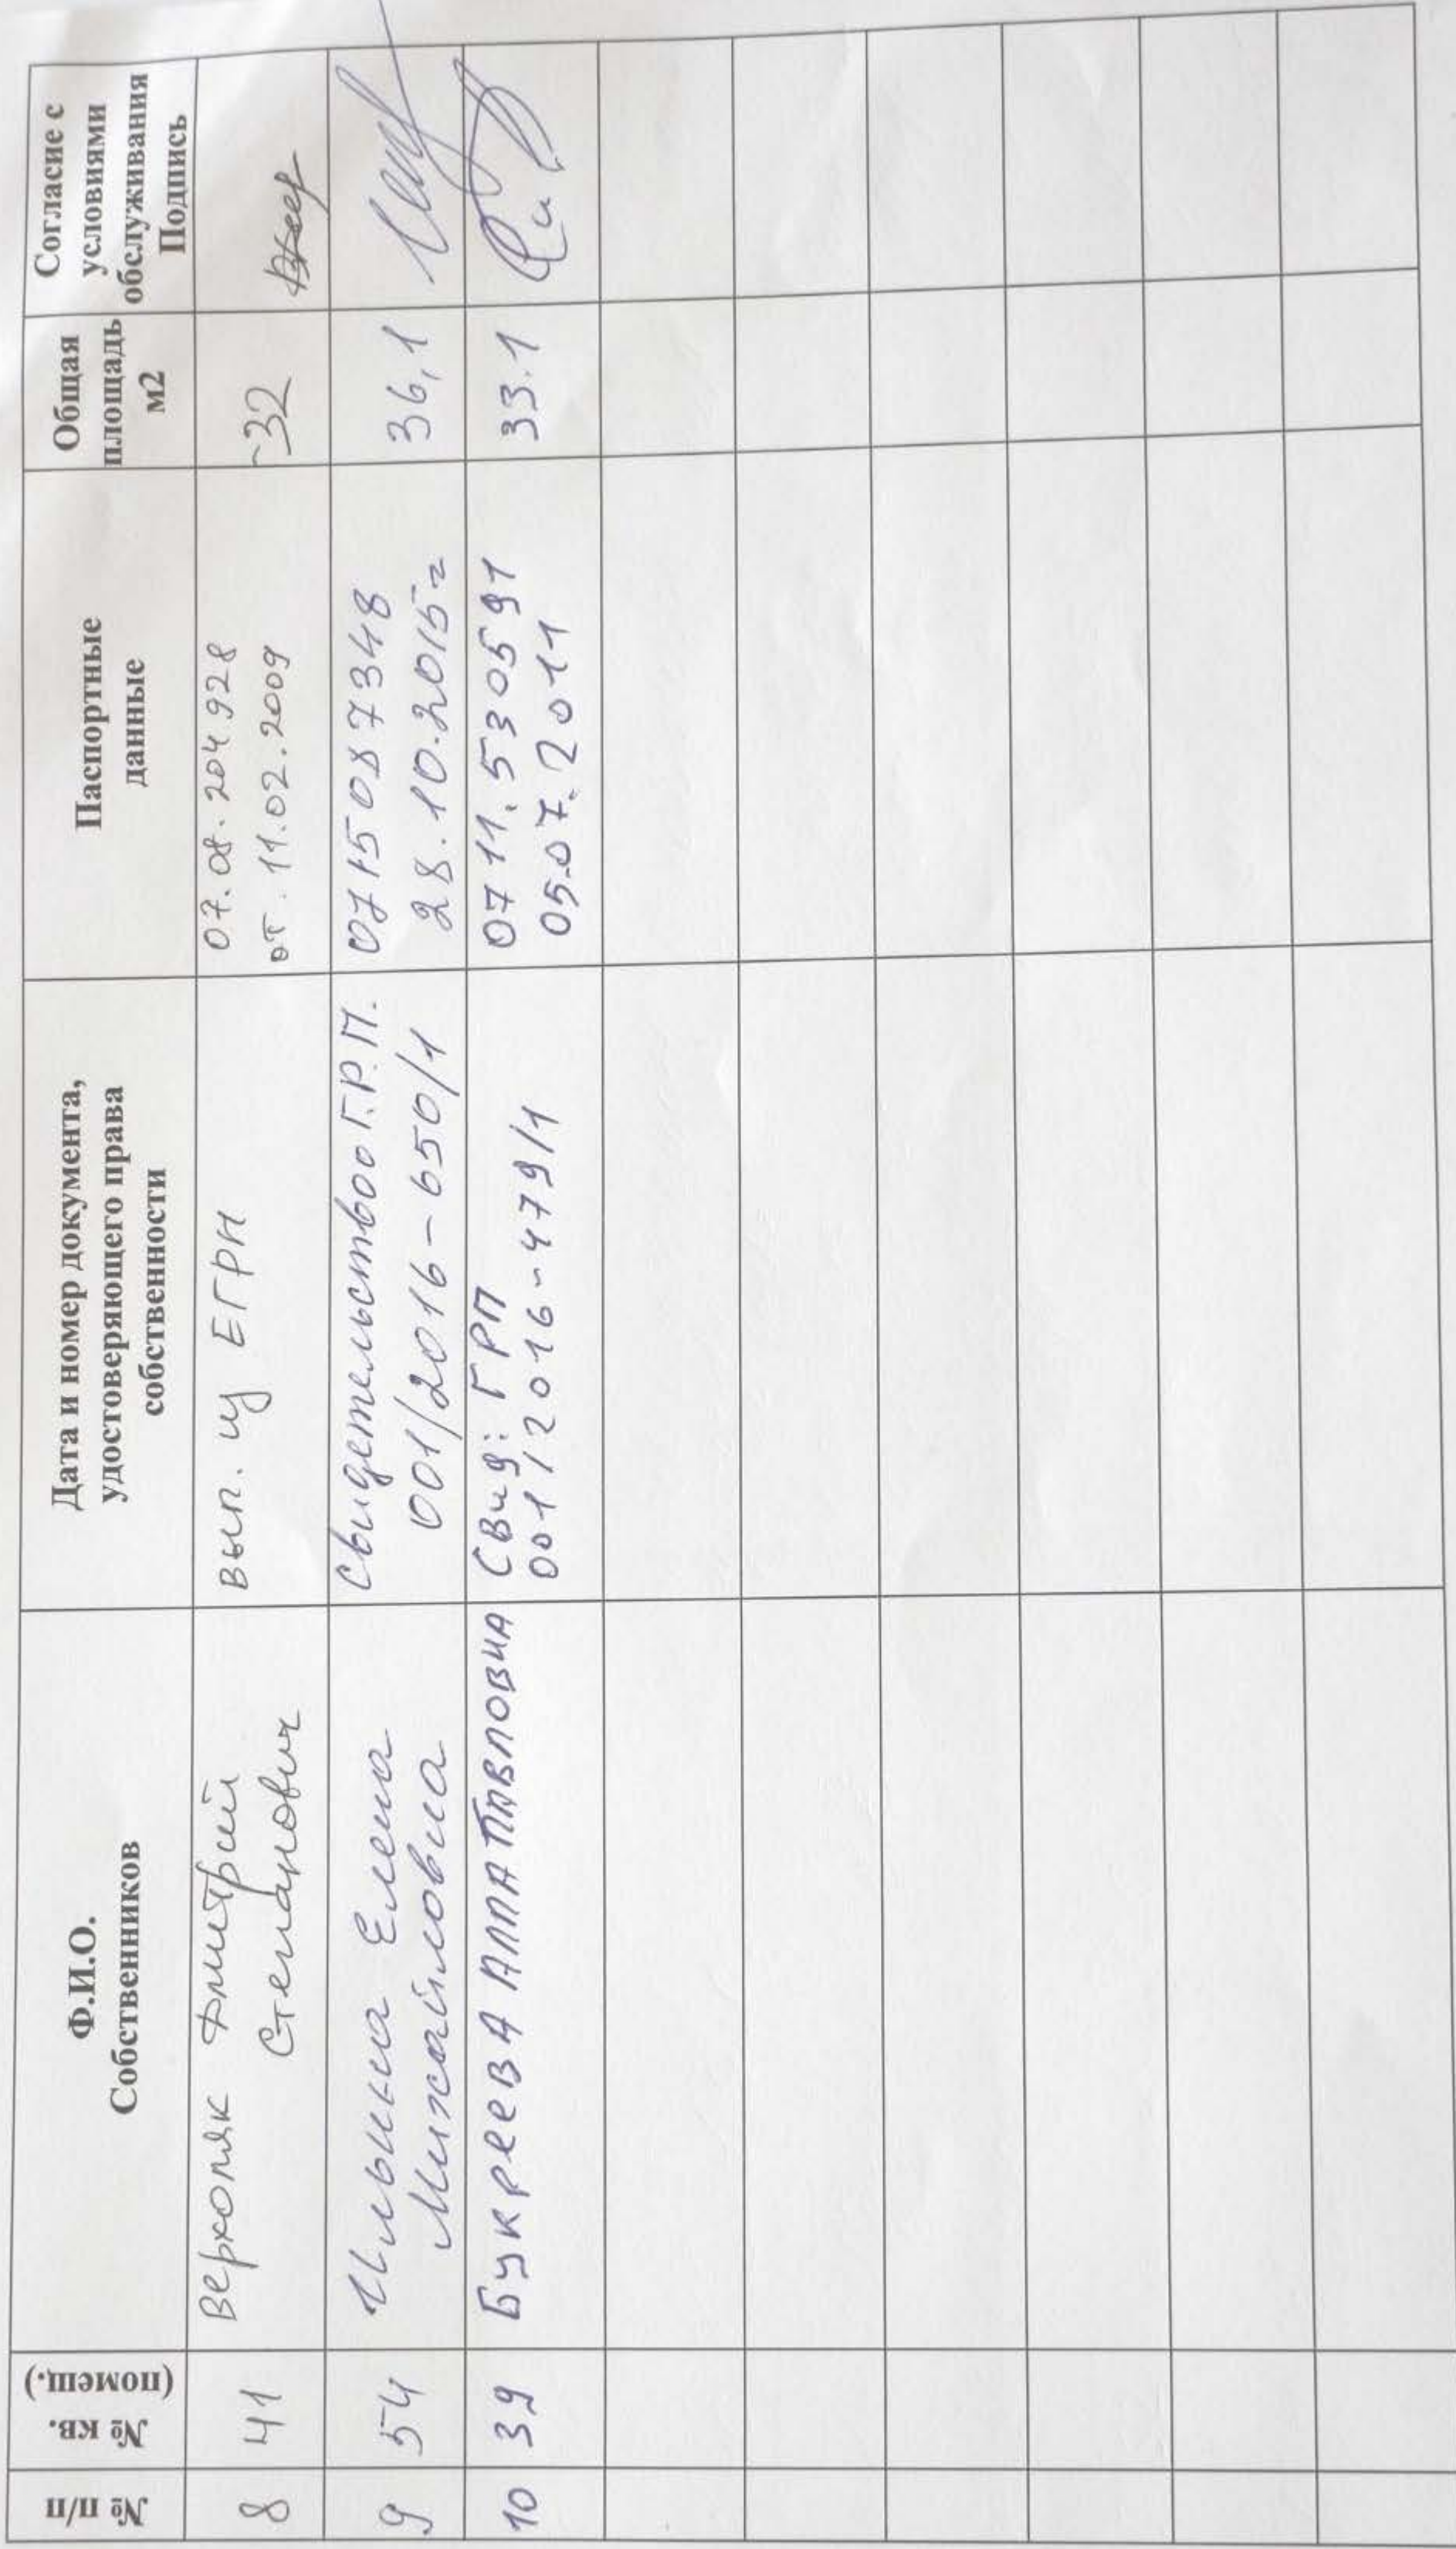 № п/п
№ кв.
(помещ.)
Ф.И.О.
Собственников
Дата и номер документа,
удостоверяющего права
собственности
Паспортные
данные
Общая
площадь
м2
Согласие с
условиями
обслуживания
Подпись
8
41
Верхоляк Дмитрий
Степанович
вып. из ЕГРН
07.08.204928
от. 11.02.2009
~32
9
54
Ильина Елена
Михайловна
Свидетельствоо Г.Р.П.
001/2016-650/1
0715087348
28.10.2015г
36,1
10
39
Букреева Алла Павловна
Свид: ГРП
001/2016-479/1
0711.530591
05.07.2011
33.1